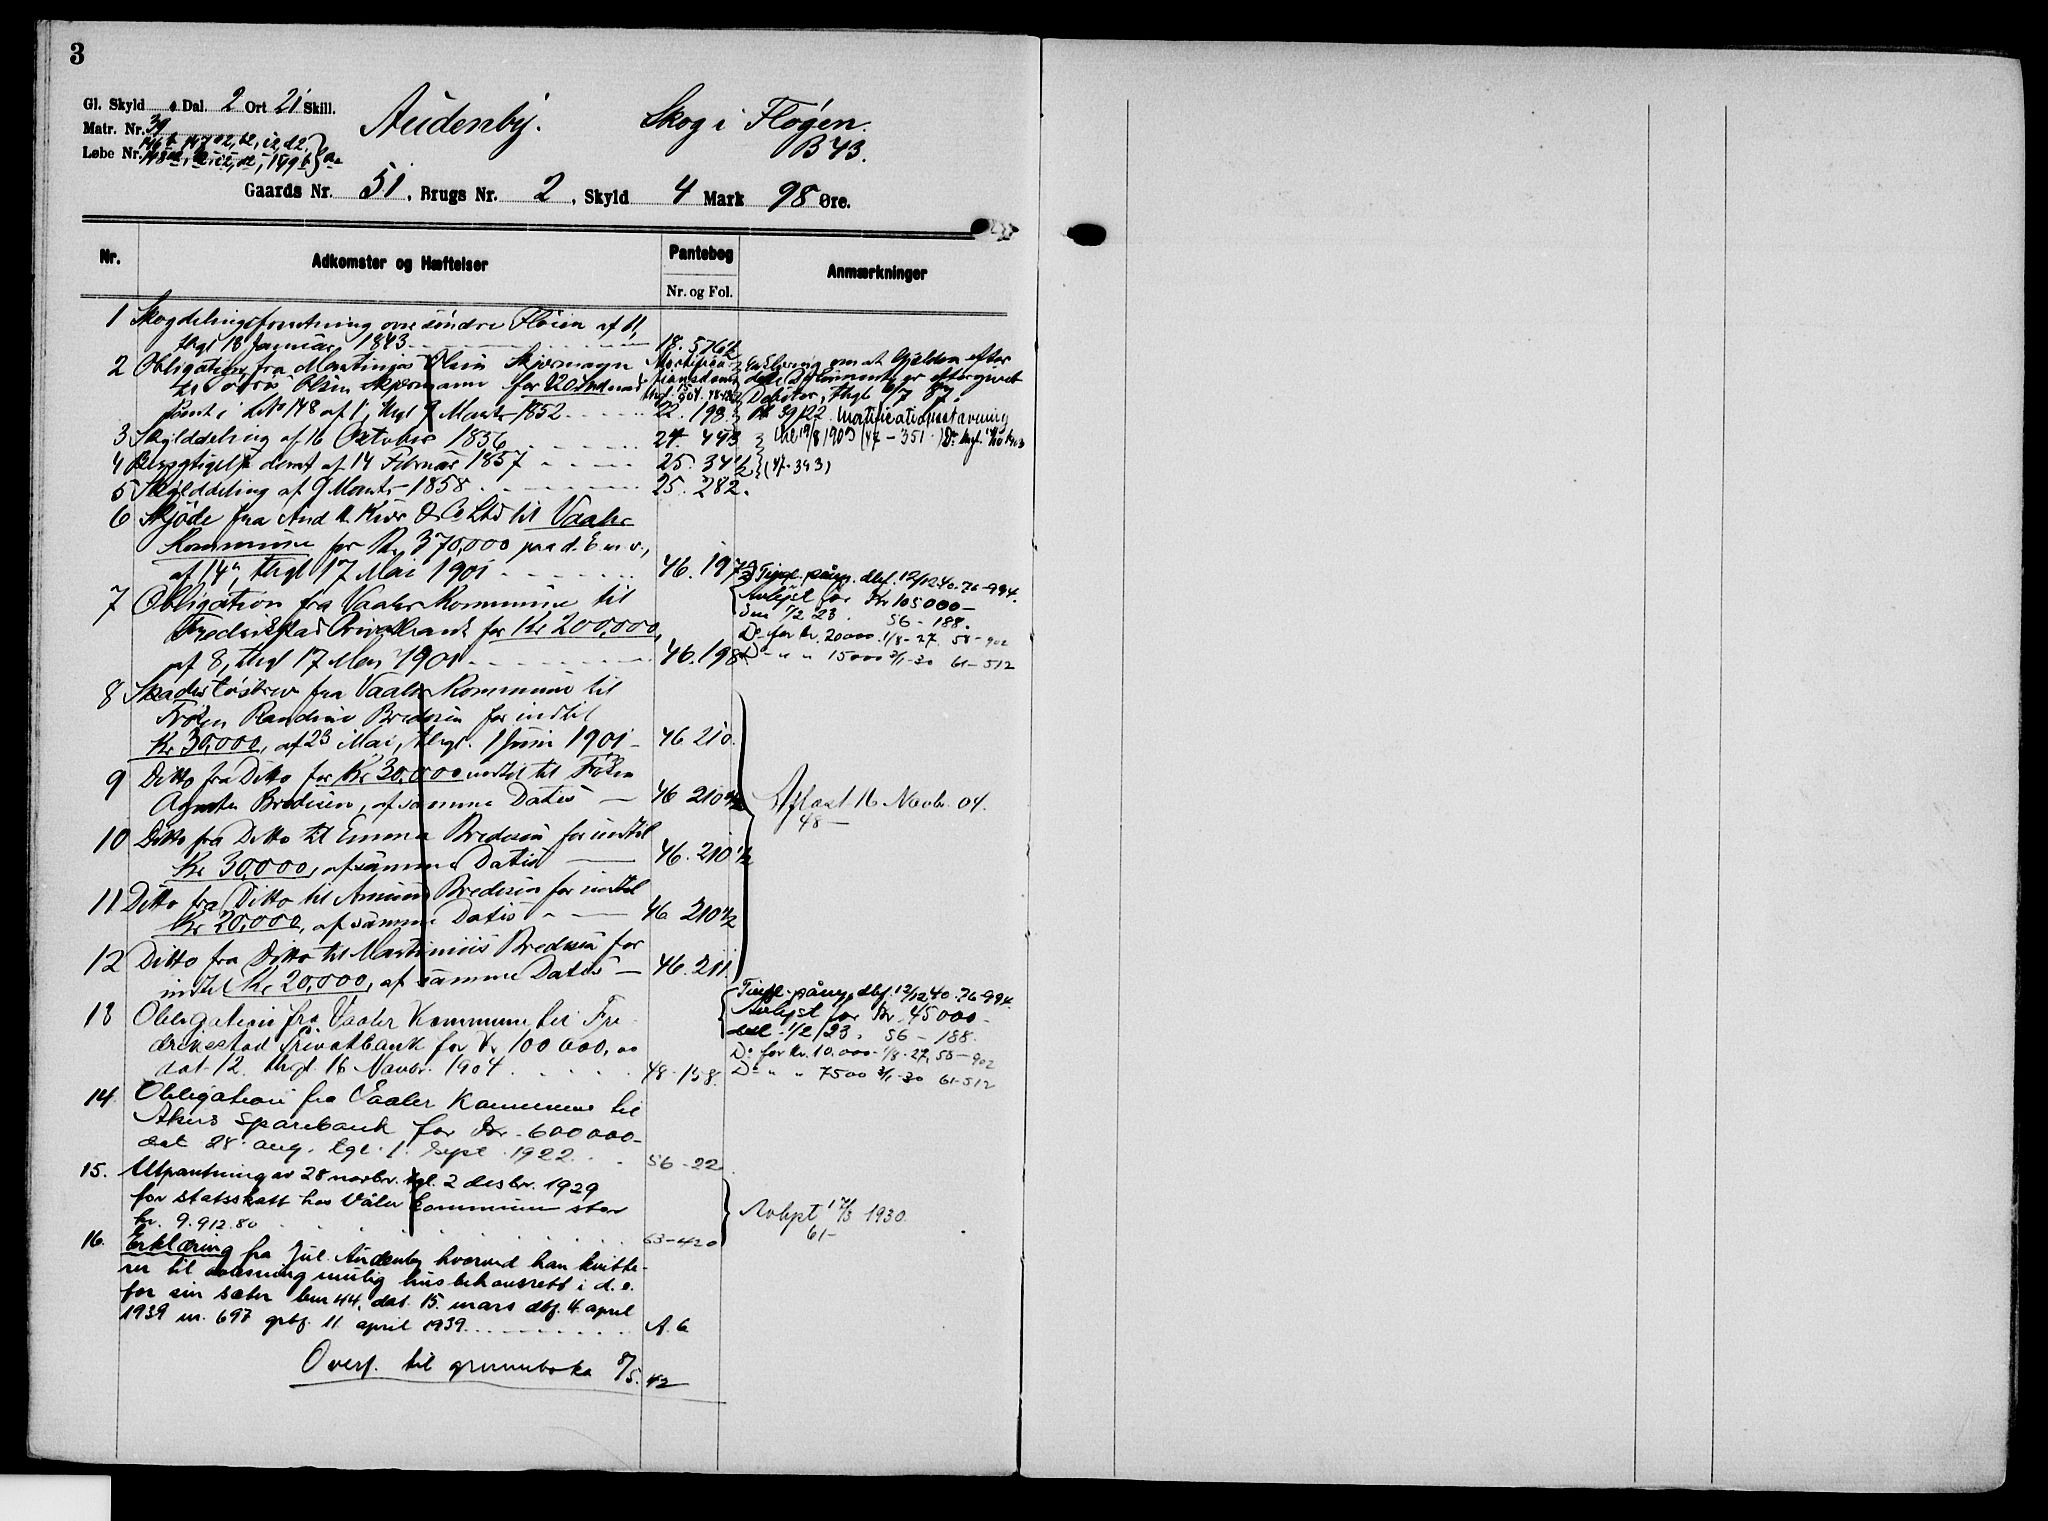 3
Gl. Skyld Dal. 2 Ort 21 Skill.
Matr. Nr. 39
Løbe Nr.
Audenby. Skog i Fløgen.
B 43.
Gaards Nr. 51, Brugs Nr. 2, Skyld 4 Mark 98 Øre.
Nr. Adkomster og Hæftelser Pantebog Anmærkninger
Nr. og Fol.
1 Skogdelingsforretning over søndre Fløien af 11,
thgl 18 Januar 1843 18. 576
2 Obligation fra Martinius Olsen
til Olsen for
i LNo 148 af 1, thgl 9 Marts 1852 22. 198
Erklæring om at Gjelden efter
dette Document er eftergivet
Debitor, thgl 6/7 87
39/22. Mortificationsstævning
thgl 19/8 1903 (47 - 351.)
3 Skylddeling af 16 Octobr 1856 24. 443
4 Berigtigelse deraf af 14 Februar 1857 25. 34
(47. 393)
5 Skylddeling af 9 Marts 1858 25. 282.
6 Skjøde fra And H. Kiær & Co Ltd til Vaaler
Kommune for Kr 370,000 paa d. E. m. v.,
af 14, thgl 17 Mai 1901 46. 197
7 Obligation fra Vaaler Kommune til
Fredrikstad Privatbank for Kr 200,000
af 8, thgl 17 Mai 1901 46. 198
Tingl. påny. dbf. 12/12 40. 76-994.
Avlyst for Kr 105000-
den 1/2 23. 56 - 188.
Do for kr. 20000. 1/8 - 27. 58 - 902
Do - " " 15000 3/1-30 61-512
8 Skadesløsbrev fra Vaaler Kommune til
Frøken Randine Bredesen for indtil
Kr 30,000, af 23 Mai, thgl. 1 Juni 1901 - 46 210.
9 Ditto fra Ditto for Kr 30,000 indtil til Frøken
Agnethe Bredesen, af samme Datis — 46 210
10 Ditto fra Ditto til Emma Bredesen for indtil
Kr 30,000, af samme Datis — 46. 210 1/2
11 Ditto fra Ditto til Bredesen for indtil
Kr 20,000, af samme Datis - — 46 210 1/2
12 Ditto fra Ditto til Martinius Bredesen for
indtil Kr 20,000, af samme Datis — 46. 211.
Aflæst 16 Novbr. 04.
48 —
13 Obligation fra Vaaler Kommune til Fre-
drikstad Privatbank for Kr 100 000, 00
dat 12. thgl 16 Novbr. 1904 48-158.
Tingl. påny dbf. 12/12 40. 76-994.
Avlyst for Kr. 45000-
1/2/23. 56 - 188.
Do for kr. 10.000 - 1/8 - 27, 58 - 902
Do - " " 7500 3/1-30 61-512
14. Obligation fra Vaaler Kommune til
Akers Sparebank for Kr. 600 000-
dat 28. aug. tgl. 1. Sept. 1922 56-22
15. Utpantning av 28 novbr. tgl. 2 desbr. 1929
for statsskatt hos Våler kommune stor
kr. 9.912.80 63-420
Avlyst 17/3 1930.
61-
16. Erklæring fra Jul. Audenby hvorved han kvitte-
rer til mulig husbehovsrett i d. e.
for sin sæter bnr 44, dat. 15. mars dbf. 4. april
1939 nr. 697 grbf. 11 april 1939 A. 6
Overf. til grunnboka 8/5. 42